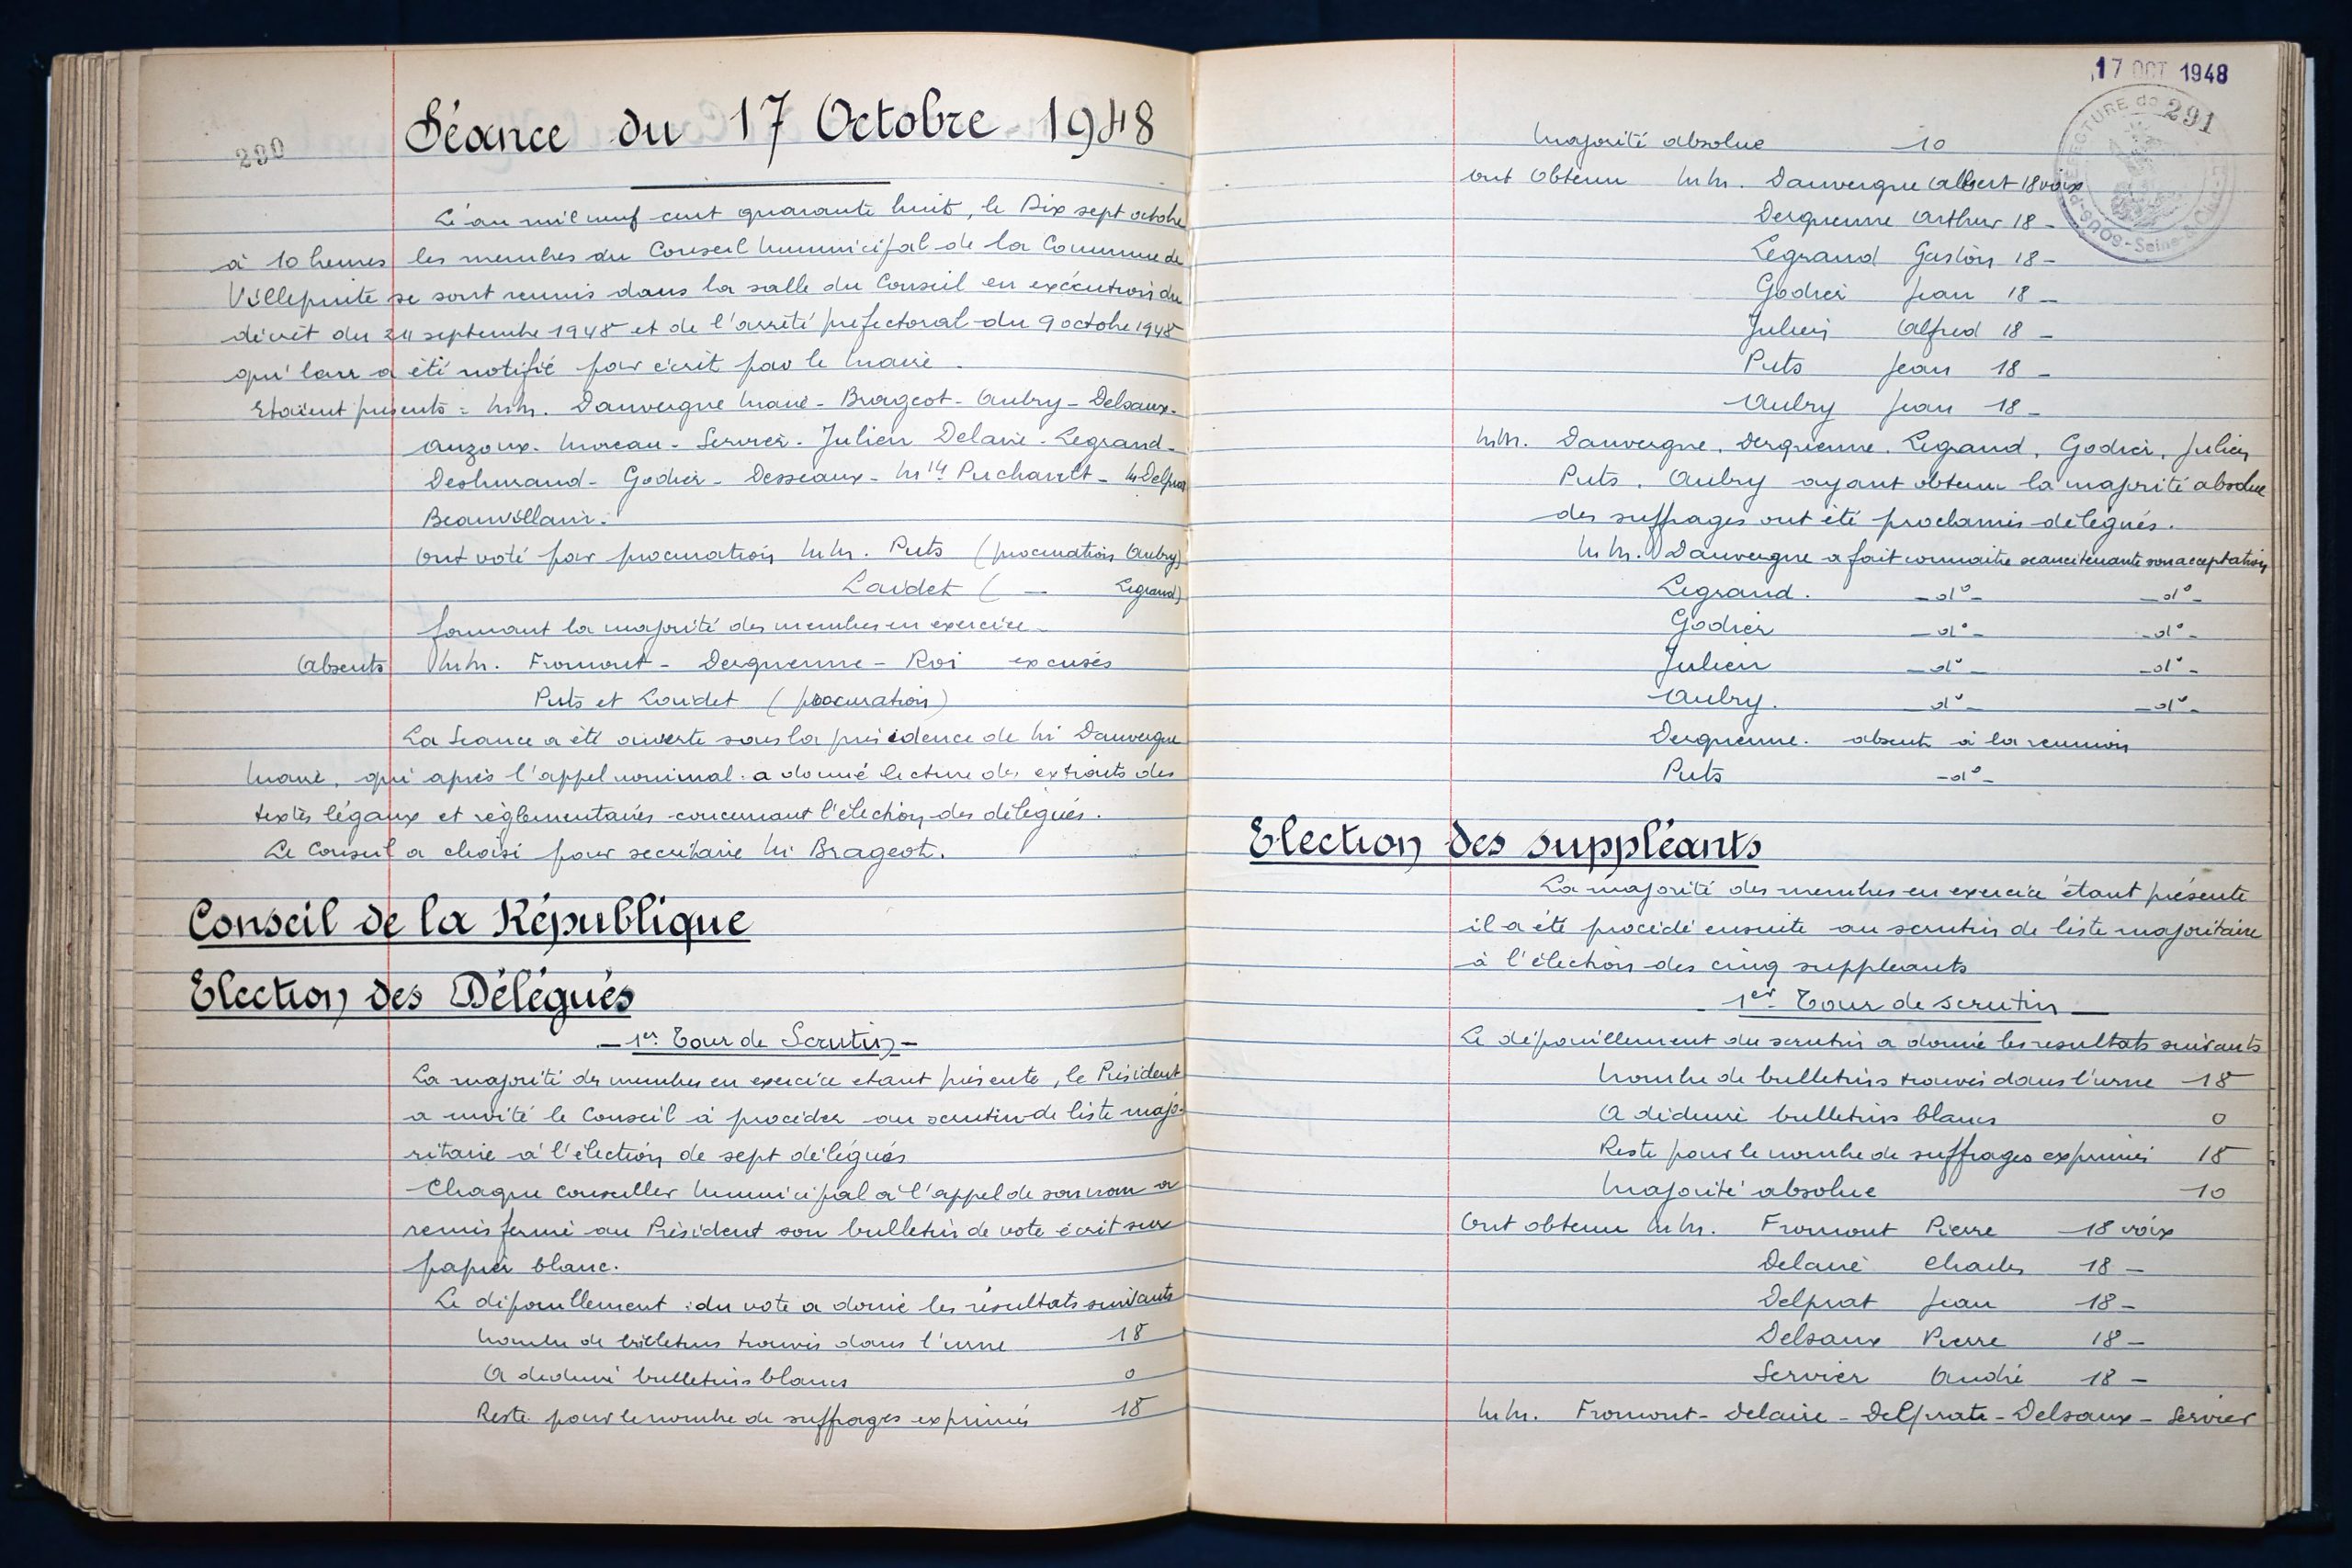 290
Séance du 17 Octobre 1948
L'an mil neuf cent quarante huit, le Dix sept octobre
à 10 heures les membres du Conseil Municipal de la Commune de
Villepinte se sont reunis dans la salle du Conseil en exécution du
décrêt du 24 septembre 1948 et de l'arrêté prefectoral du 9 octobre 1948
qu' leur a été notifié par écrit par le Maire.
Etaient présents : MM. Dauvergne Maire - Brageot - Aubry - Delsaux -
Auzoux - Moreau - Servier - Julien Delaire - Legrand -
Deshuraud - Godier - Desseaux - Mlle Puchault - M Delprat
Beauvillain.
Ont voté par procuration MM. Puts (procuration Aubry)
Loudet ( — Legrand)
formant la majorité des membres en exercice
Absents MM. Fromont - Derquenne - Roi excusés
Puts et Loudet (procuration)
La Seance a été ouverte sous la présidence de M Dauvergne
Maire, qui après l'appel nominal a donné lecture des extraits des
textes légaux et réglementaires concernant l'élection des délégués.
Le Conseil a choisi pour secrétaire M. Brageot.
Conseil de la République
Election des Délégués
- 1er Tour de Scrutin -
La majorité des membres en exercice etant présente, le Président
a invité le Conseil à procéder au scrutin de liste majo-
ritaire à l'élection de sept délégués
Chaque conseiller Municipal à l'appel de son nom a
remis fermé au Président son bulletin de vote écrit sur
papier blanc.
Le dépouillement du vote a donné les résultats suivants
Nombre de bulletins trouvés dans l'urne 18
A deduire bulletins blancs 0
Reste pour le nombre de suffrages exprimés 18
17 OCT 1948
291
SOUS-PRÉFECTURE de
Seine-&-Oise
Majorité absolue 10
Ont Obtenu MM. Dauvergne Albert 18 voix
Derquenne Arthur 18 -
Legrand Gaston 18 -
Godier Jean 18 -
Julien Alfred 18 -
Puts Jean 18 -
Aubry Jean 18 -
MM. Dauvergne, Derquenne, Legrand, Godier, Julien
Puts, Aubry ayant obtenu la majorité absolue
des suffrages ont été proclamés délégués.
MM. Dauvergne a fait connaitre seance tenante son acceptation
Legrand. - d° - - d° -
Godier - d° - - d° -
Julien - d° - - d° -
Aubry. - d° - - d° -
Derquenne. absent à la reunion
Puts - d° -
Election des suppléants
La majorité des membres en exercice étant présente
il a été procédé ensuite au scrutin de liste majoritaire
à l'élection des cinq suppléants
1er Tour de scrutin
Le dépouillement du scrutin a donné les resultats suivants
Nombre de bulletins trouvés dans l'urne 18
A déduire bulletins blancs 0
Reste pour le nombre de suffrages exprimés 18
Majorité absolue 10
Ont obtenu MM. Fromont Pierre 18 voix
Delaire Charles 18 -
Delprat Jean 18 -
Delsaux Pierre 18 -
Servier André 18 -
MM. Fromont - Delaire - Delprate - Delsaux - Servier